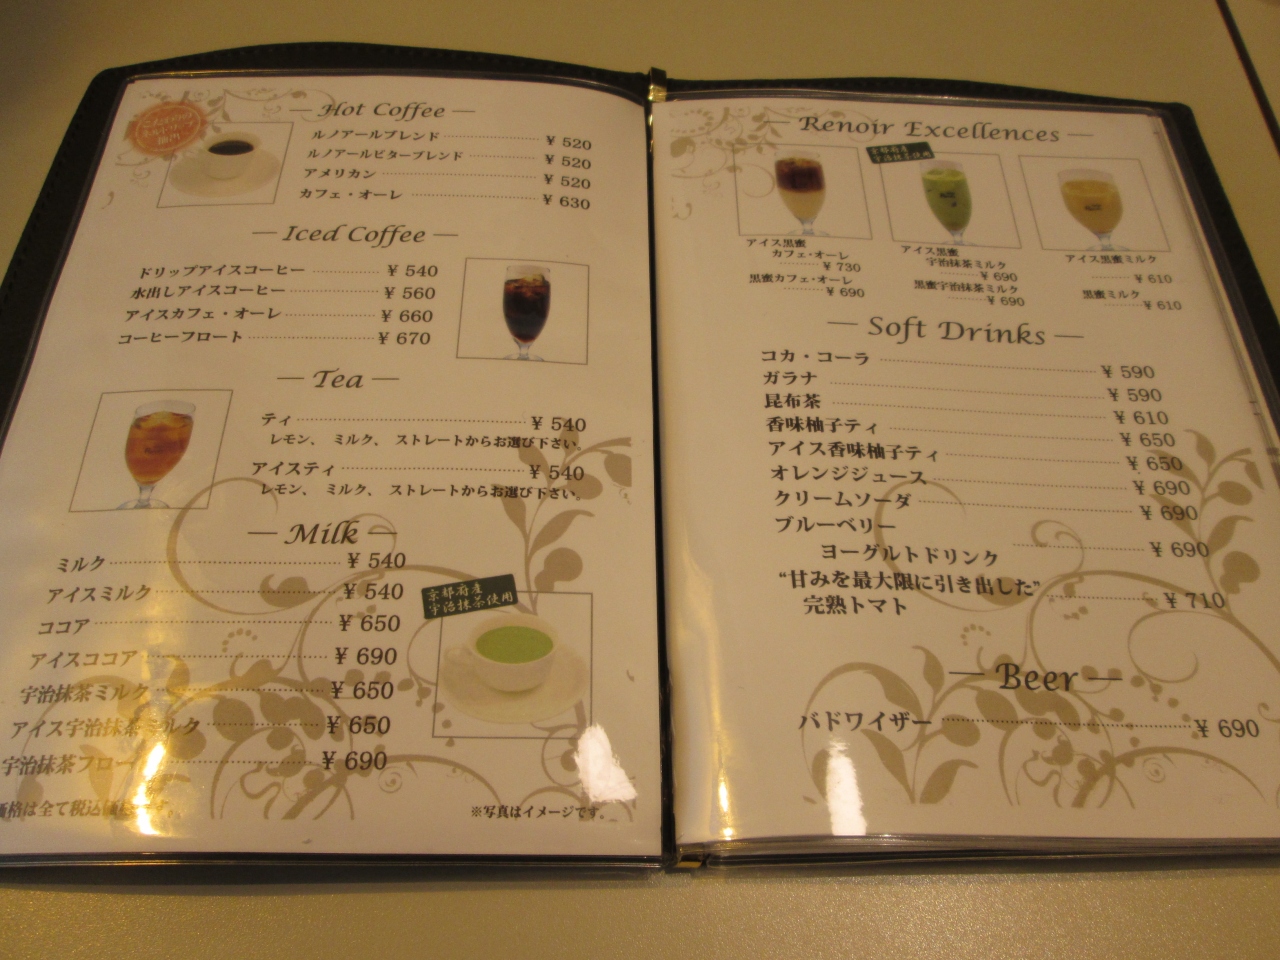 Hot Coffee
ルノアールブレンド ¥ 520
ルノアールビターブレンド ¥ 520
アメリカン ¥ 520
カフェ・オーレ ¥ 630
Iced Coffee
ドリップアイスコーヒー ¥ 540
水出しアイスコーヒー ¥ 560
アイスカフェ・オーレ ¥ 660
コーヒーフロート ¥ 670
Tea
ティ ¥ 540
レモン、ミルク、ストレートからお選び下さい。
アイスティ ¥ 540
レモン、ミルク、ストレートからお選び下さい。
Milk
ミルク ¥ 540
アイスミルク ¥ 540
ココア ¥ 650
アイスココア ¥ 690
宇治抹茶ミルク ¥ 650
アイス宇治抹茶ミルク ¥ 650
宇治抹茶フロー ¥ 690
京都府産
宇治抹茶使用
価格は全て税込価格です。
※写真はイメージです。
Renoir Excellences
京都府産
宇治抹茶使用
アイス黒蜜
カフェ・オーレ
¥ 730
黒蜜カフェ・オーレ
¥ 690
アイス黒蜜
宇治抹茶ミルク
¥ 690
黒蜜宇治抹茶ミルク
¥ 690
アイス黒蜜ミルク
¥ 610
黒蜜ミルク
¥ 610
Soft Drinks
コカ・コーラ ¥ 590
ガラナ ¥ 590
昆布茶 ¥ 610
香味柚子ティ ¥ 650
アイス香味柚子ティ ¥ 650
オレンジジュース ¥ 690
クリームソーダ ¥ 690
ブルーベリー
ヨーグルトドリンク ¥ 690
“甘みを最大限に引き出した”
完熟トマト ¥ 710
Beer
バドワイザー ¥ 690